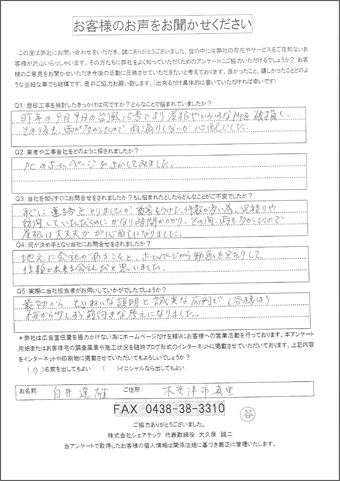 お客様のお声をお聞かせください
この度は弊社にお問い合わせをいただき、誠にありがとうございました。世の中には弊社の存在やサービスをご存知ないお
客様が沢山いらっしゃいます。その方たちに弊社をよく知っていただくためのアンケートにご協力いただけるでしょうか？お
客様のご意見をお聞かせいただき今後の活動に反映させていただきたいと考えております。良かったこと、嬉しかったことどのよ
うな些細な事でも結構です。是非ご協力お願い致します。(出来るだけ具体的に書いていただければ幸いです)
Q1：屋根工事を検討したきっかけは何ですか？どんなことで悩まれていましたか？
昨年の9月9日の台風15号により、屋根やいろいろな所を破損し、
その後も、雨が多かったので雨漏りしないか心配でした。
Q2：業者や工事会社をどのように探されましたか？
PCのホームページをよんできめました。
Q3：当社を知りすぐにお問合せをされましたか？もし悩まれたとしたらどんなことがご不安でしたか？
すぐに連絡をとりましたが、
かなり時間がかかり、その間、雨も多かったので
屋根は大丈夫か心配になりました。
Q4：何が決め手となり当社にお問合せをされましたか？
地元に会社があることと、ホームページから動画を見たりして、
信頼が出来る会社だと思いました。
Q5：実際に当社担当者がお伺いしていかがでしたでしょうか？
最初から、ていねいな説明と誠実な応対で(谷様は)
＊弊社は広告宣伝費を極力かけない為にホームページだけを頼りにお客様への営業活動を行っております。本アンケート
用紙またはお客様宅の調査風景や施工状況を随時ブログ形式のインターネットに掲載させていただいております。上記内容
をインターネットや印刷物に掲載させていただいてもよろしいでしょうか？
(○)名前を出してもよい　(　)イニシャルなら出してもよい
お名前： 　ご住所： 木更津市真里
FAX 0438-38-3310
谷
ご協力ありがとうございました。
株式会社シェアテック 代表取締役 大久保 誠二
当アンケートで取得したお客様の個人情報は関係法規に基づき厳正に管理いたします。